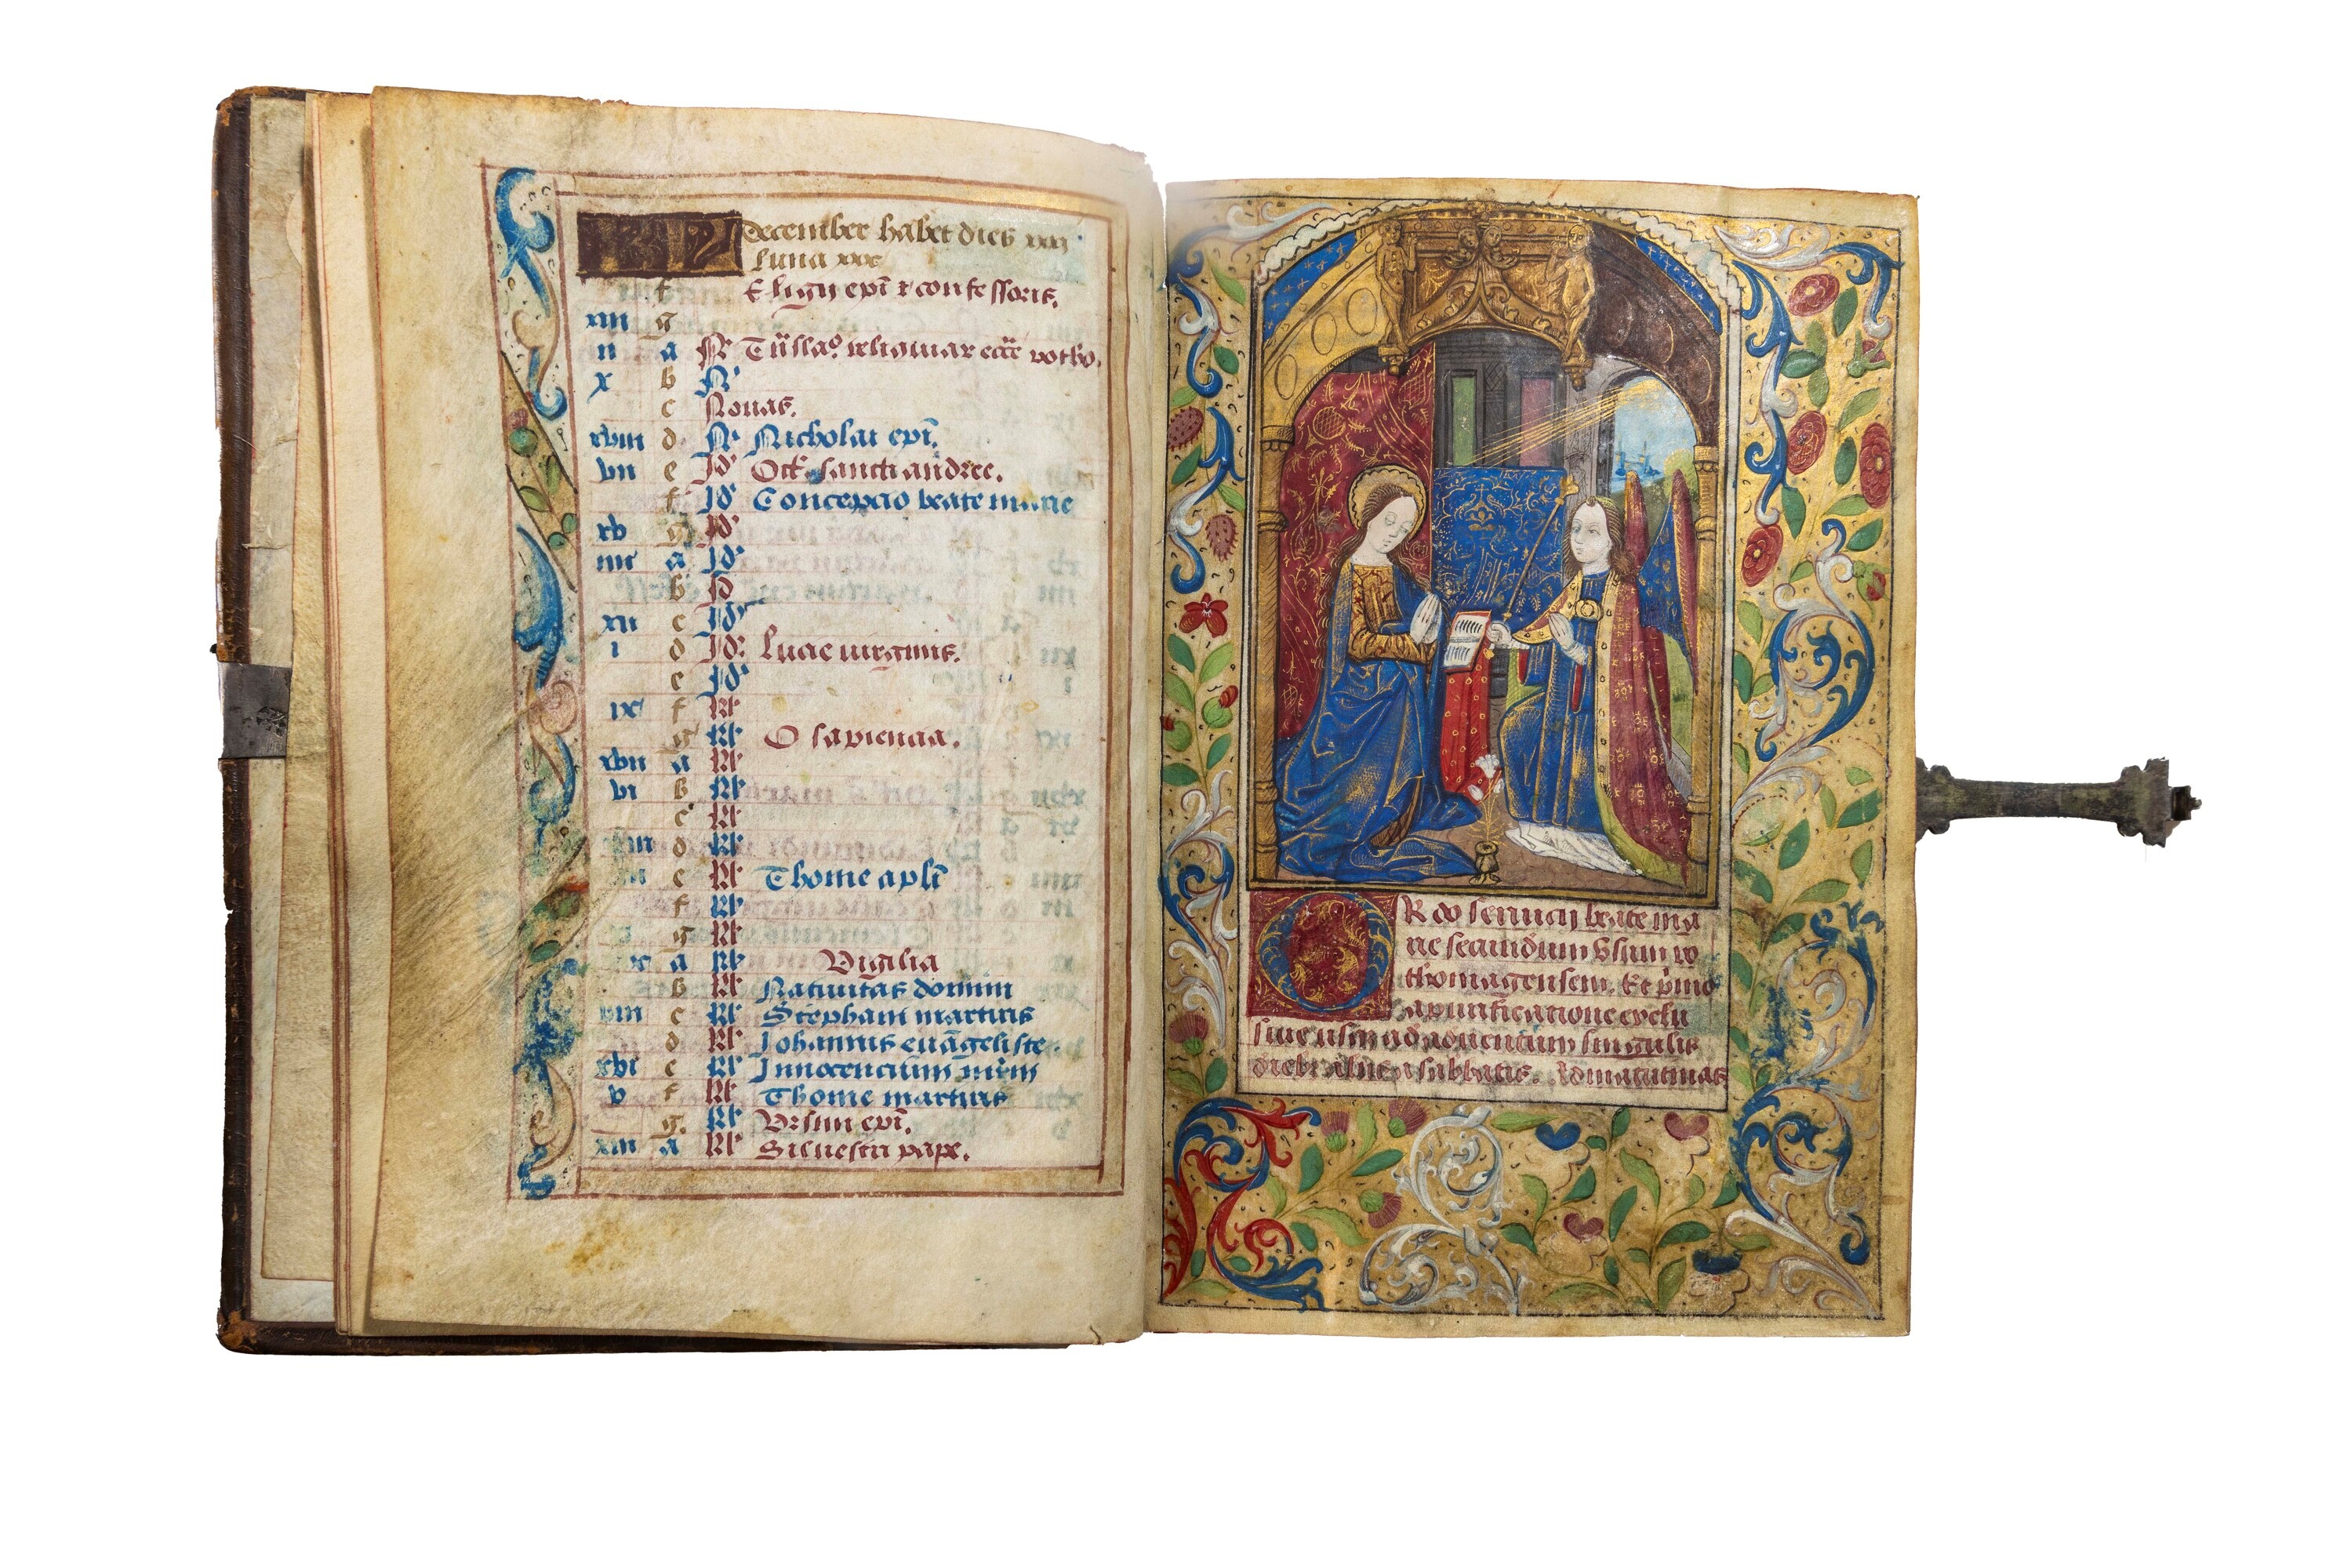 KL December habet dies xxxj
luna xxx
f Eligij epi & confessoris.
xiii g
ii a N Tnslao. reliquiar ecce rotho.
x b N
c Nonas.
xviii d Id Nicholai epi.
vii e Id Oct sancti andree.
f Id Concepcio beate marie
xv g Id
iiii a Id
b Id
xii c Id
i d Id Lucie virginis.
e Id
ix f kl
g kl O sapiencia.
xvii a kl
vi b kl
c kl
d kl
e kl Thome apli
f kl
g kl
a kl Vigilia
b kl Nativitas domini
c kl Stephani martiris
d kl Johannis evangeliste.
xvi e kl Innocencium
v f kl Thome martiris
g kl Ursini epi.
xiii a kl Silvestri pape.
ORdo servicij beate ma
rie secundum Usum ro
thomagensem. Et primo
a purificatione exclu
sive usque ad adventum singulis
diebus sabbatis. Ad matutinas